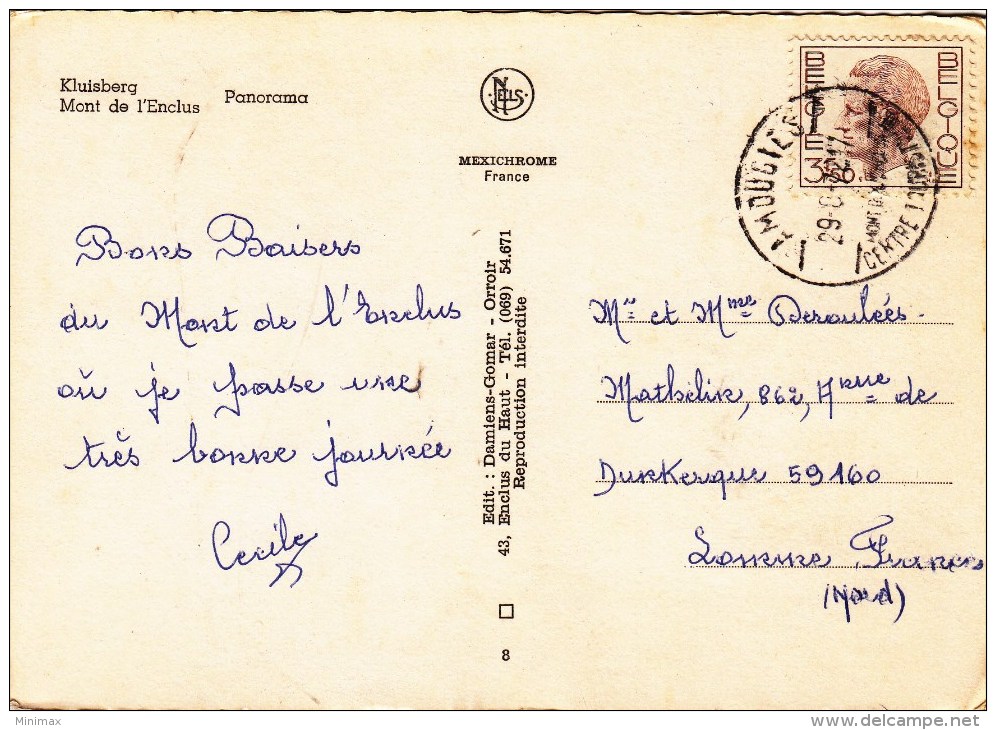 Kluisberg
Mont de l'Enclus
Panorama
NELS
MEXICHROME
France
BELGIE
BELGIQUE
3F50
AMOUGIES
29-8-
17
MONT DE L'ENCLUS
CENTRE TOURISTIQUE
Bons Baisers
du Mont de l'Enclus
où je passe une
très bonne journée
Cecile
Edit. : Damiens-Gomar - Orroir
43, Enclus du Haut - Tél. (069) 54.671
Reproduction interdite
8
Mr et Mme Deroulées.
Mathelin, 862, Anue de
Dunkerque 59160
Lomme France
(Nord)
Minimax
delcampe.net